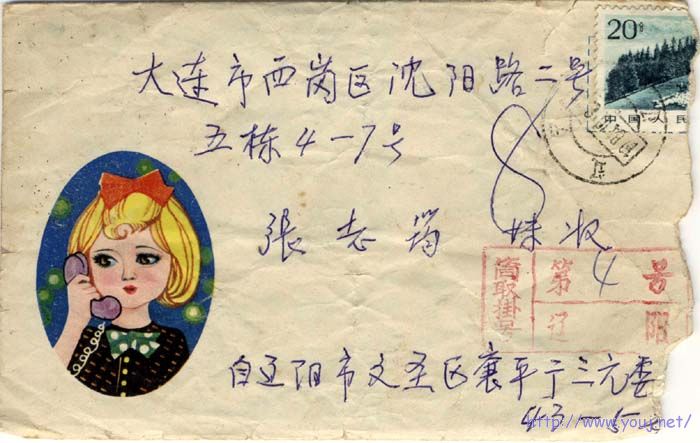 20分
中国人民
大连市西岗区沈阳路二号
五栋4-7号
8
張志筠 妹收
筒取掛号
第4号
辽阳
自辽阳市文圣区襄平于三元委
43-5
http://www.youj.net/